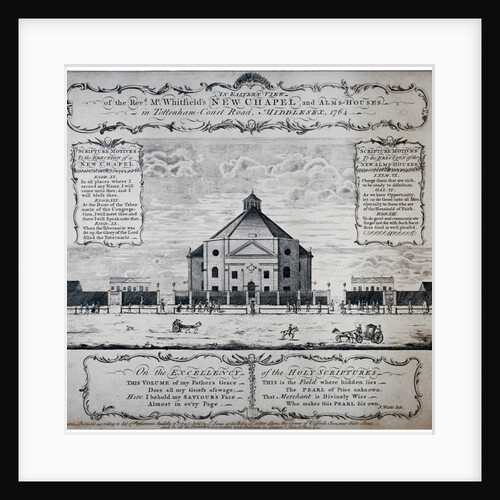 AN EASTERN VIEW
of the Rev.d Mr. Whitfield's NEW CHAPEL and ALMS-HOUSES
in Tottenham-Court Road, MIDDLESEX, 1764
SCRIPTURE MOTIVES
To the ERECTION of a
NEW CHAPEL.
EXOD. XX.
In all places where I
record my Name, I will
come unto thee; and I
will bless thee.
EXOD. XXIX.
At the Door of the Taber-
nacle of the Congrega-
tion, I will meet thee and
there I will speak unto thee.
EXOD. XL.
When the Tabernacle was
set up, the Glory of the Lord
filled the Tabernacle
SCRIPTURE MOTIVES
To the ERECTION of the
NEW ALMS-HOUSES.
I TIM. VI.
Charge them that are rich,
to be ready to distribute.
GAL. VI.
As we have Opportunity,
let us do Good unto all Men
especially to them who are
of the Household of Faith.
HEB. XIII.
To do good and communicate
forget not for with such Sacri-
fices God is well pleased.
On the EXCELLENCY of the HOLY SCRIPTURES.
THIS VOLUME of my Father's Grace
Does all my Griefs asswage;
Here I behold my SAVIOURS Face
Almost in ev'ry Page
THIS is the Field where hidden lies
The PEARL of Price unknown;
That Merchant is Divinely Wise
Who makes this PEARL his own.